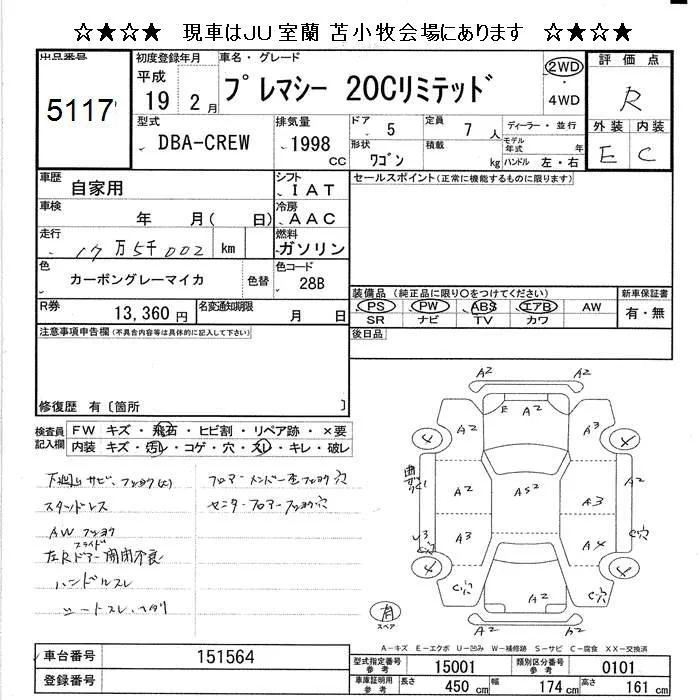 ☆★☆★ 現車はJU室蘭 苫小牧会場にあります ☆★☆★
出品番号 初度登録年月 車名・グレード 評価点
5117
平成 19 2月
プレマシー 20Cリミテッド
2WD
4WD
R
型式 DBA-CREW
排気量 1998 cc
ドア 5
定員 7 人
ディーラー・並行
形状 ワゴン
積載 kg
モデル年式 年
ハンドル 左・右
外装 内装
E C
車歴 自家用
シフト IAT
セールスポイント(正常に機能するものに限ります)
車検 年 月( 日)
冷房 AAC
走行 17万5千002 km
燃料 ガソリン
色 カーボングレーマイカ 色替
色コード 28B
装備品(純正品に限り○をつけてください)
新車保証書
R券 13,360円
名変通知期限 月 日
PS PW ABS エアB AW
有・無
SR ナビ TV カワ
注意事項申告欄(不具合内容等は具体的に記入して下さい)
後日品
修復歴 有〔箇所 〕
検査員記入欄
FW キズ・飛石・ヒビ割・リペア跡・×要
内装 キズ・汚れ・コゲ・穴・スレ・キレ・破レ
下廻りサビ、フショク(大)
フロアーメンバー左フショク穴
スタッドレス
センターフロアーフショク穴
AWフショク
スライド
左Rドアー開閉不良
ハンドルスレ
シートスレ、ヘタリ
A2 A2
E A2
A2 A3
4 4
A2 AS2 A3 A2
A2 A4
4 4
A2
A2 A2
有
スペア
A-キズ E-エクボ U-凹み W-補修跡 S-サビ C-腐食 XX-交換済
車台番号 151564
登録番号
型式指定番号 参考 15001
類別区分番号 参考 0101
車庫証明用 参考 長さ 450 cm 幅 174 cm 高さ 161 cm